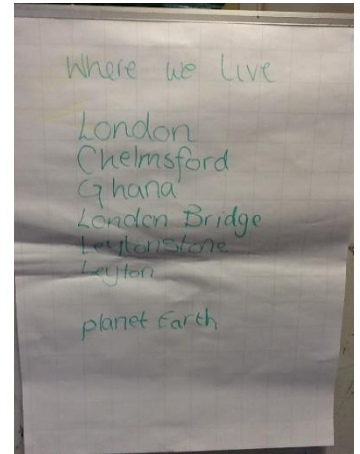 Where we live
London
Chelmsford
Ghana
London Bridge
Leytonstone
Leyton
planet Earth